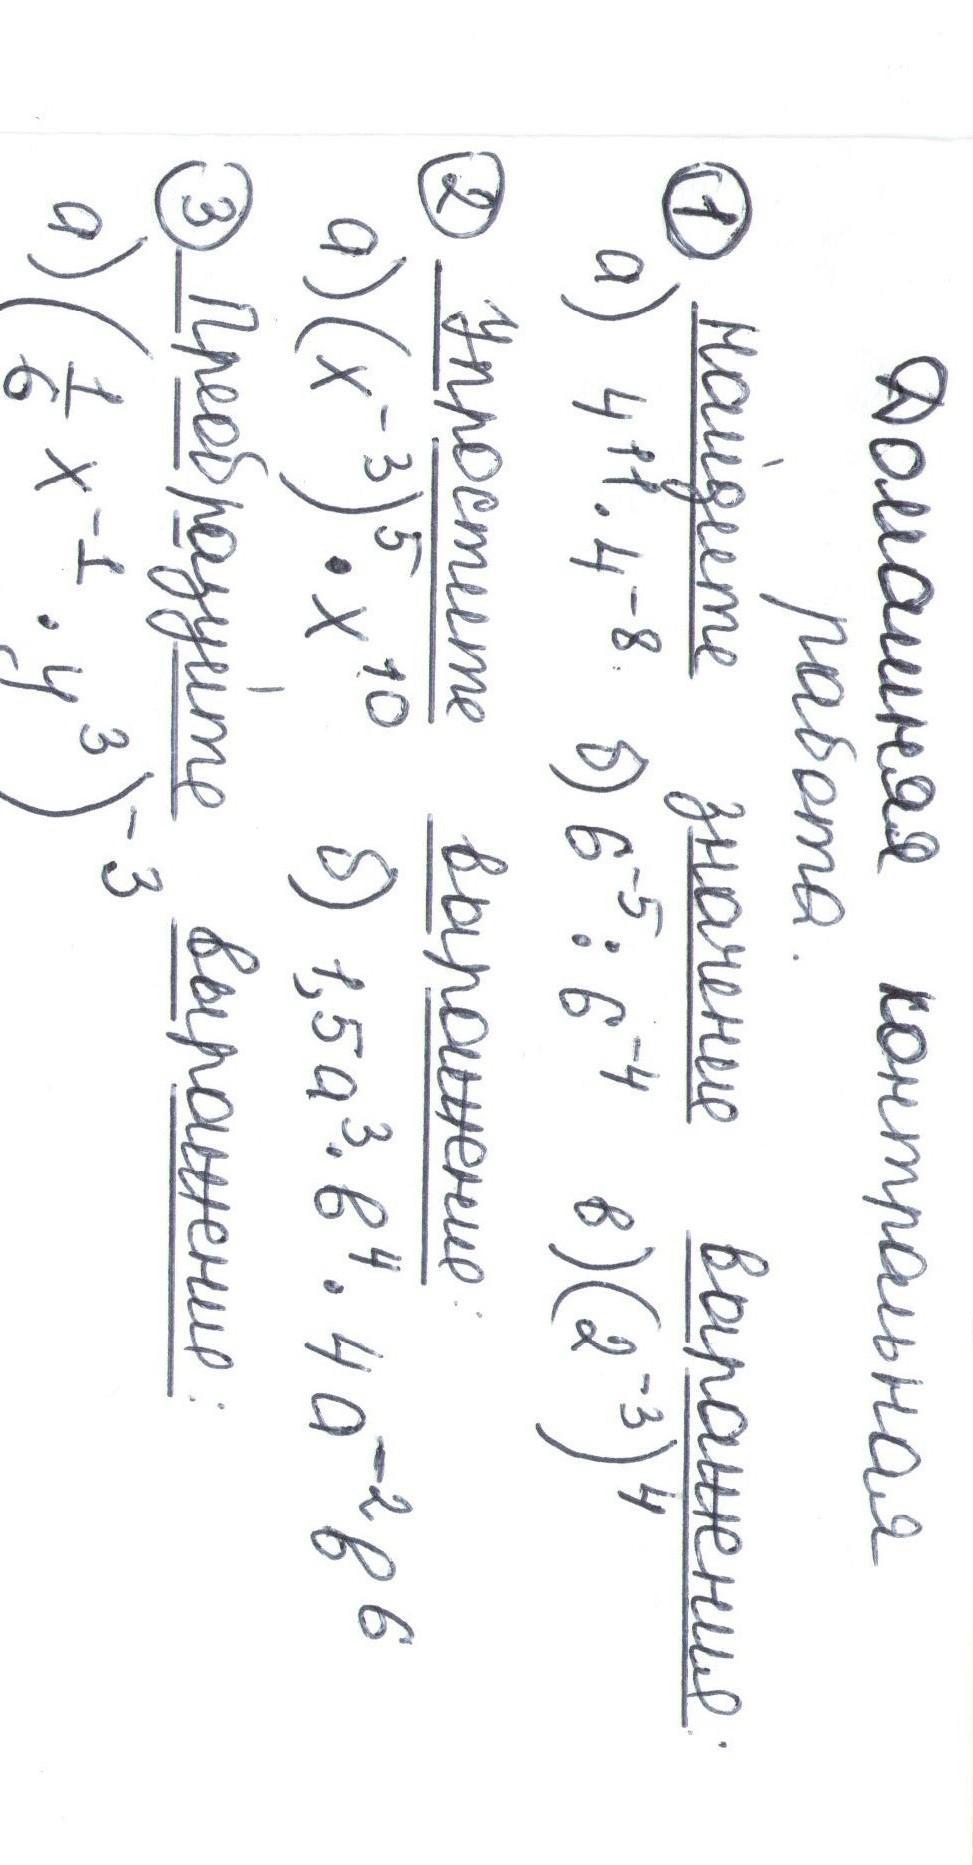 Домашняя контрольная
работа.
① Найдите значение выражения:
а) 4¹¹ · 4⁻⁸ б) 6⁻⁵ : 6⁻⁴ в) (2⁻³)⁴
② Упростите выражение:
а) (x⁻³)⁵ · x¹⁰ б) 1,5a³ · b⁴ · 4a⁻²b⁶
③ Преобразуйте выражение:
а) (1/6 x⁻¹ · y³)⁻³